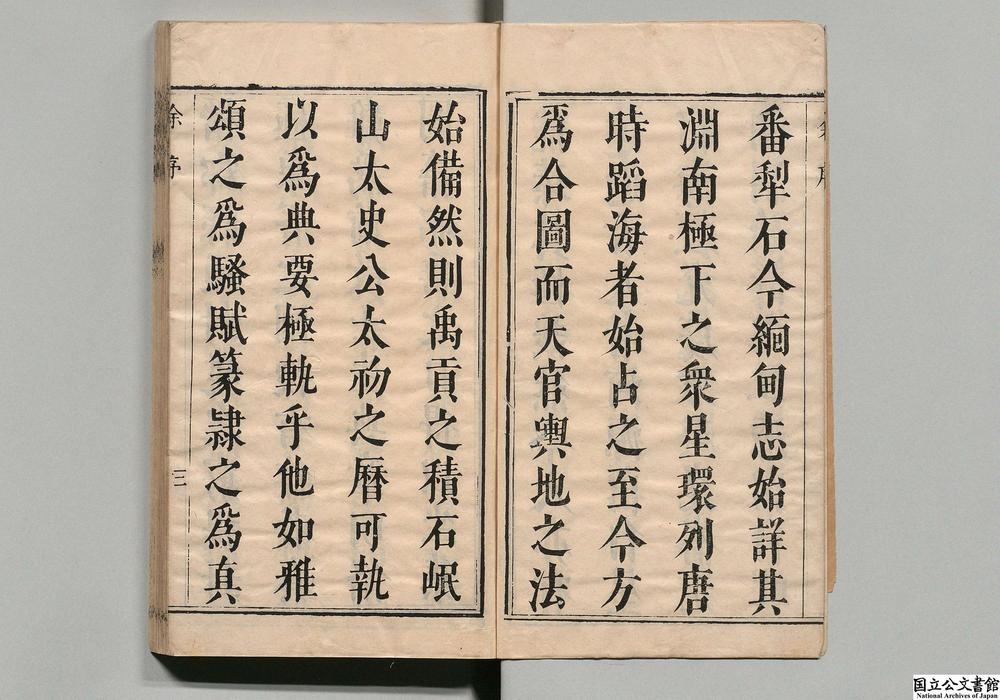 番犁石今緬甸志始詳其
淵南極下之衆星環列唐
時蹈海者始占之至今方
爲合圖而天官輿地之法
始備然則禹貢之積石岷
山太史公太初之曆可執
以爲典要極軌乎他如雅
頌之爲騷賦篆隷之爲真
三
国立公文書館
National Archives of Japan